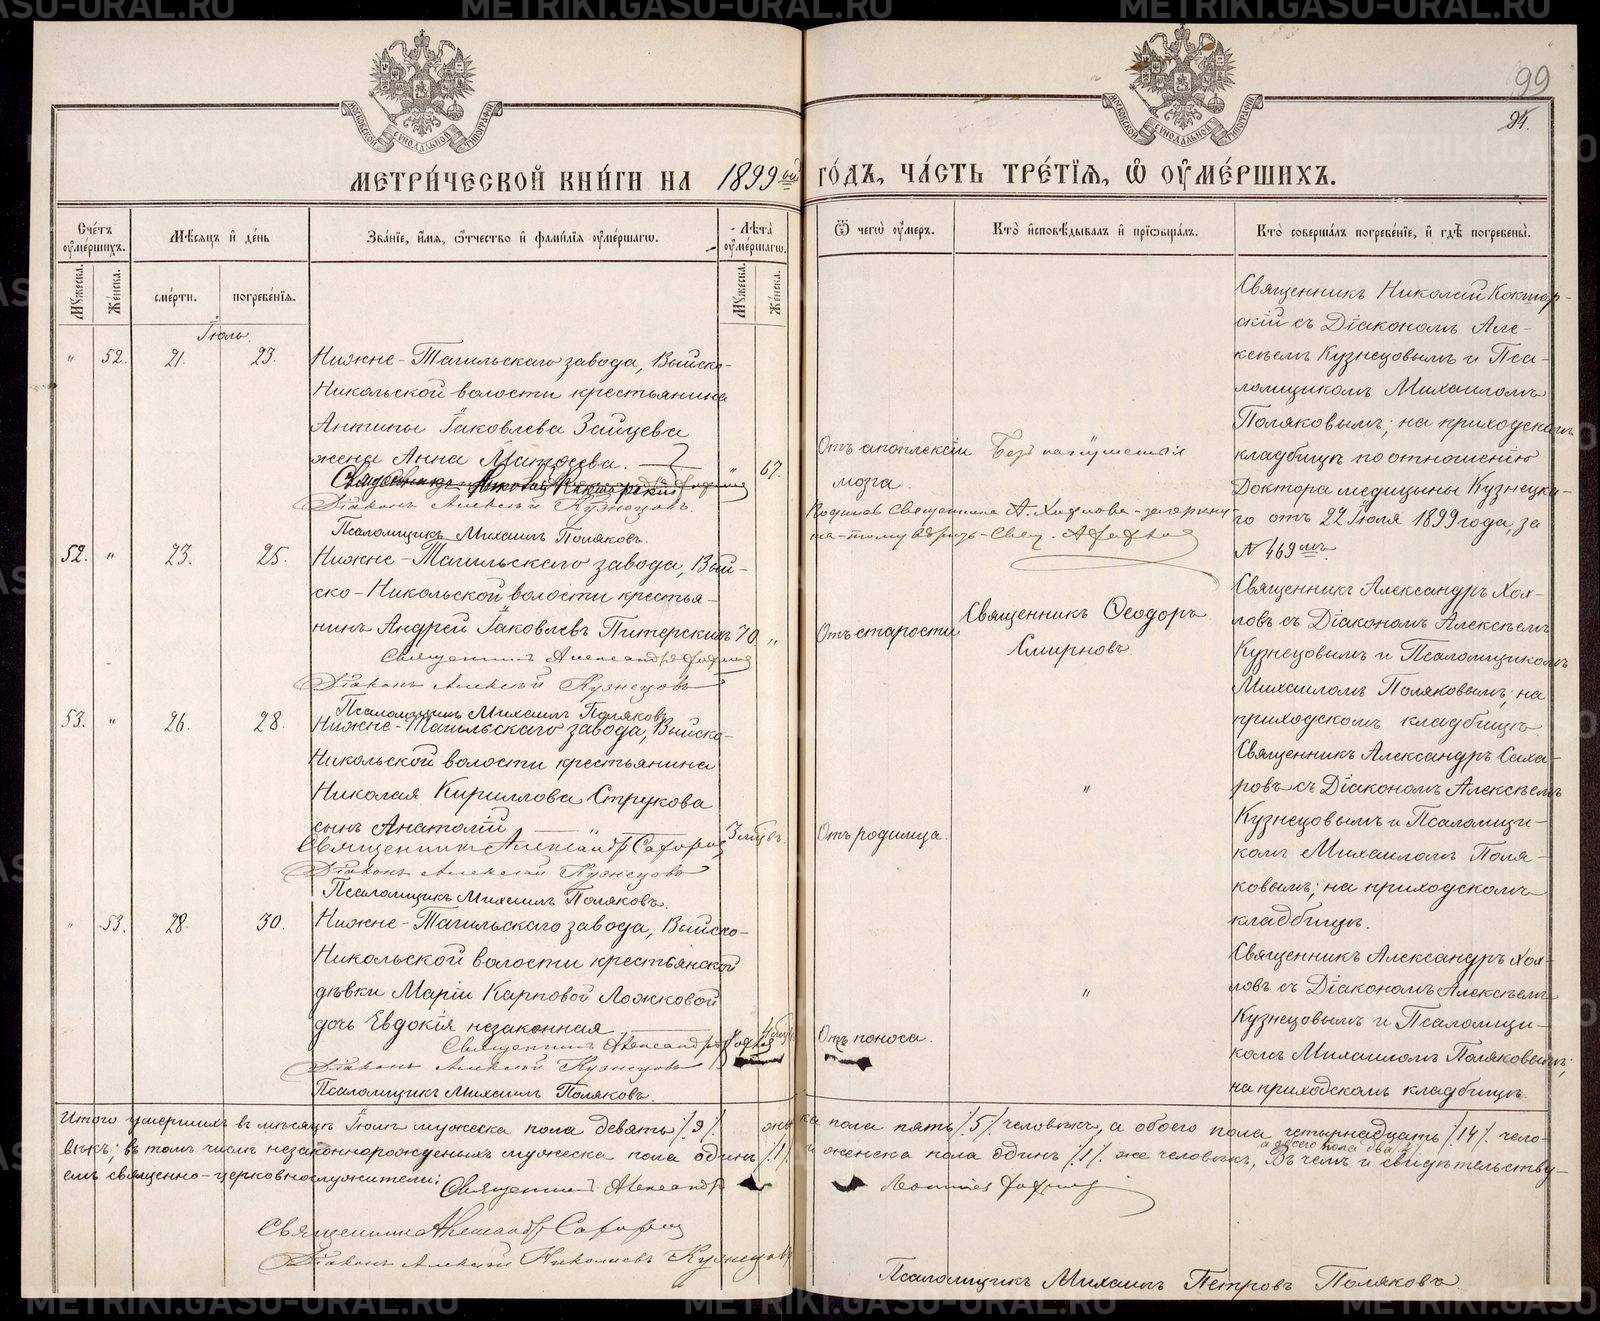 METRIKI.GASU-URAL.RU
99
94.
МОСКОВСКОЙ СѴНОДАЛЬНОЙ ТИПОГРАФІИ
МЕТРИ́ЧЕСКОЙ КНИ́ГИ НА 1899ый ГО́ДЪ, ЧА́СТЬ ТРЕ́ТІѦ, Ѡ ОУМЕ́РШИХЪ.
Сче́тъ оуме́ршихъ.
Мѣсѧцъ и де́нь
Зва́ніе, и́мѧ, ѻтчество и фами́лїѧ оуме́ршагѡ.
Лѣта̀ оуме́ршагѡ.
Ѿ чегѡ̀ оу́меръ.
Кто̀ исповѣ́дывалъ и прїѡбща́лъ.
Кто̀ соверша́лъ погребе́нїе, и гдѣ̀ погребены̀.
Мꙋ́жеска.
Же́нска.
сме́рти.
погребе́нїѧ.
Мꙋ́жеска.
Же́нска.
Іюль.
" 52. 21. 23.
Нижне-Тагильскаго завода, Выйско-
Никольской волости крестьянина
Антипы Іаковлева Зайцева
жена Анна Матѳеева. " 67.
Діаконъ Алексѣй Кузнецовъ.
Псаломщикъ Михаилъ Поляковъ.
Отъ апоплексіи
мозга
Безъ напутствія
Священникъ Николай Кокшар-
скій съ Діакономъ Але-
ксѣемъ Кузнецовымъ и Пса-
ломщикомъ Михаиломъ
Поляковымъ; на приходскомъ
кладбищѣ по отношенію
Доктора медицины Кузнецка-
го отъ 22 Іюля 1899 года, за
№ 469мъ.
52. " 23. 25.
Нижне-Тагильскаго завода, Вый-
ско-Никольской волости крестья-
нинъ Андрей Іаковлевъ Питерскихъ 70 "
Священникъ Александръ
Діаконъ Алексѣй Кузнецовъ
Псаломщикъ Михаилъ Поляковъ
Отъ старости
Священникъ Ѳеодоръ
Смирновъ.
Священникъ Александръ Хох-
ловъ съ Діакономъ Алексѣемъ
Кузнецовымъ и Псаломщикомъ
Михаиломъ Поляковымъ; на
приходскомъ кладбищѣ.
53. " 26. 28.
Нижне-Тагильскаго завода, Выйско-
Никольской волости крестьянина
Николая Кириллова Струкова
сынъ Анатолій 3 мцвъ.
Священникъ Александръ Сахаровъ
Діаконъ Алексѣй Кузнецовъ
Псаломщикъ Михаилъ Поляковъ.
Отъ родимца.
"
Священникъ Александръ Саха-
ровъ съ Діакономъ Алексѣемъ
Кузнецовымъ и Псаломщи-
комъ Михаиломъ Поля-
ковымъ; на приходскомъ
кладбищѣ.
" 53. 28. 30.
Нижне-Тагильскаго завода, Выйско-
Никольской волости крестьянской
дѣвки Маріи Карповой Ложковой
дочь Евдокія незаконная
Священникъ Александръ
Діаконъ Алексѣй Кузнецовъ
Псаломщикъ Михаилъ Поляковъ.
Отъ поноса.
"
Священникъ Александръ Хох-
ловъ съ Діакономъ Алексѣемъ
Кузнецовымъ и Псаломщи-
комъ Михаиломъ Поляковымъ;
на приходскомъ кладбищѣ.
Итого умершихъ въ мѣсяцѣ Іюлѣ мужеска пола девять /.9/. женска пола пять /.5/. человѣкъ, а обоего пола четырнадцать /.14/. чело-
вѣкъ; въ томъ числѣ незаконнорожденныхъ мужеска пола одинъ /.1/. и женска пола одинъ /.1/. же человѣкъ, а обоего пола два. Въ чемъ и свидѣтельству-
емъ священно-церковнослужители:
Священникъ Александръ
Священникъ Александръ Сахаровъ
Діаконъ Алексѣй Николаевъ Кузнецовъ
Псаломщикъ Михаилъ Петровъ Поляковъ.